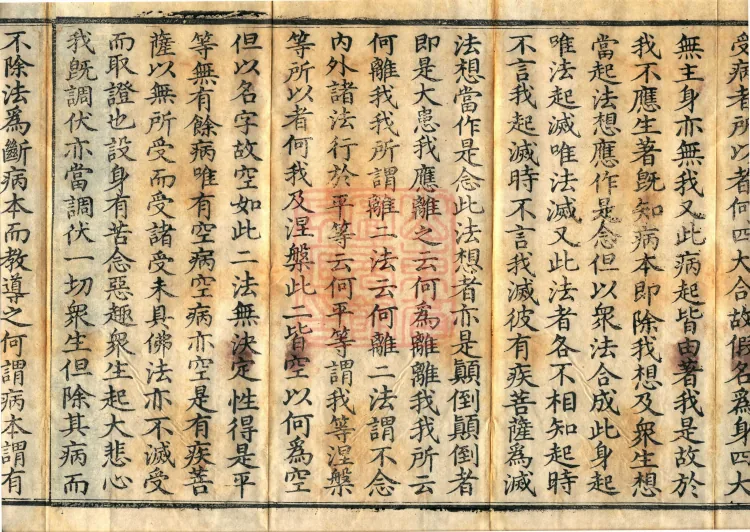 受病者所以者何四大合故假名爲身四大
無主身亦無我又此病起皆由著我是故於
我不應生著旣知病本即除我想及衆生想
當起法想應作是念但以衆法合成此身起
唯法起滅唯法滅又此法者各不相知起時
不言我起滅時不言我滅彼有疾菩薩爲滅
法想當作是念此法想者亦是顛倒顛倒者
即是大患我應離之云何爲離離我我所云
何離我我所謂離二法云何離二法謂不念
内外諸法行於平等云何平等謂我等涅槃
等所以者何我及涅槃此二皆空以何爲空
但以名字故空如此二法無決定性得是平
等無有餘病唯有空病空病亦空是有疾菩
薩以無所受而受諸受未具佛法亦不滅受
而取證也設身有苦念惡趣衆生起大悲心
我旣調伏亦當調伏一切衆生但除其病而
不除法爲斷病本而教導之何謂病本謂有